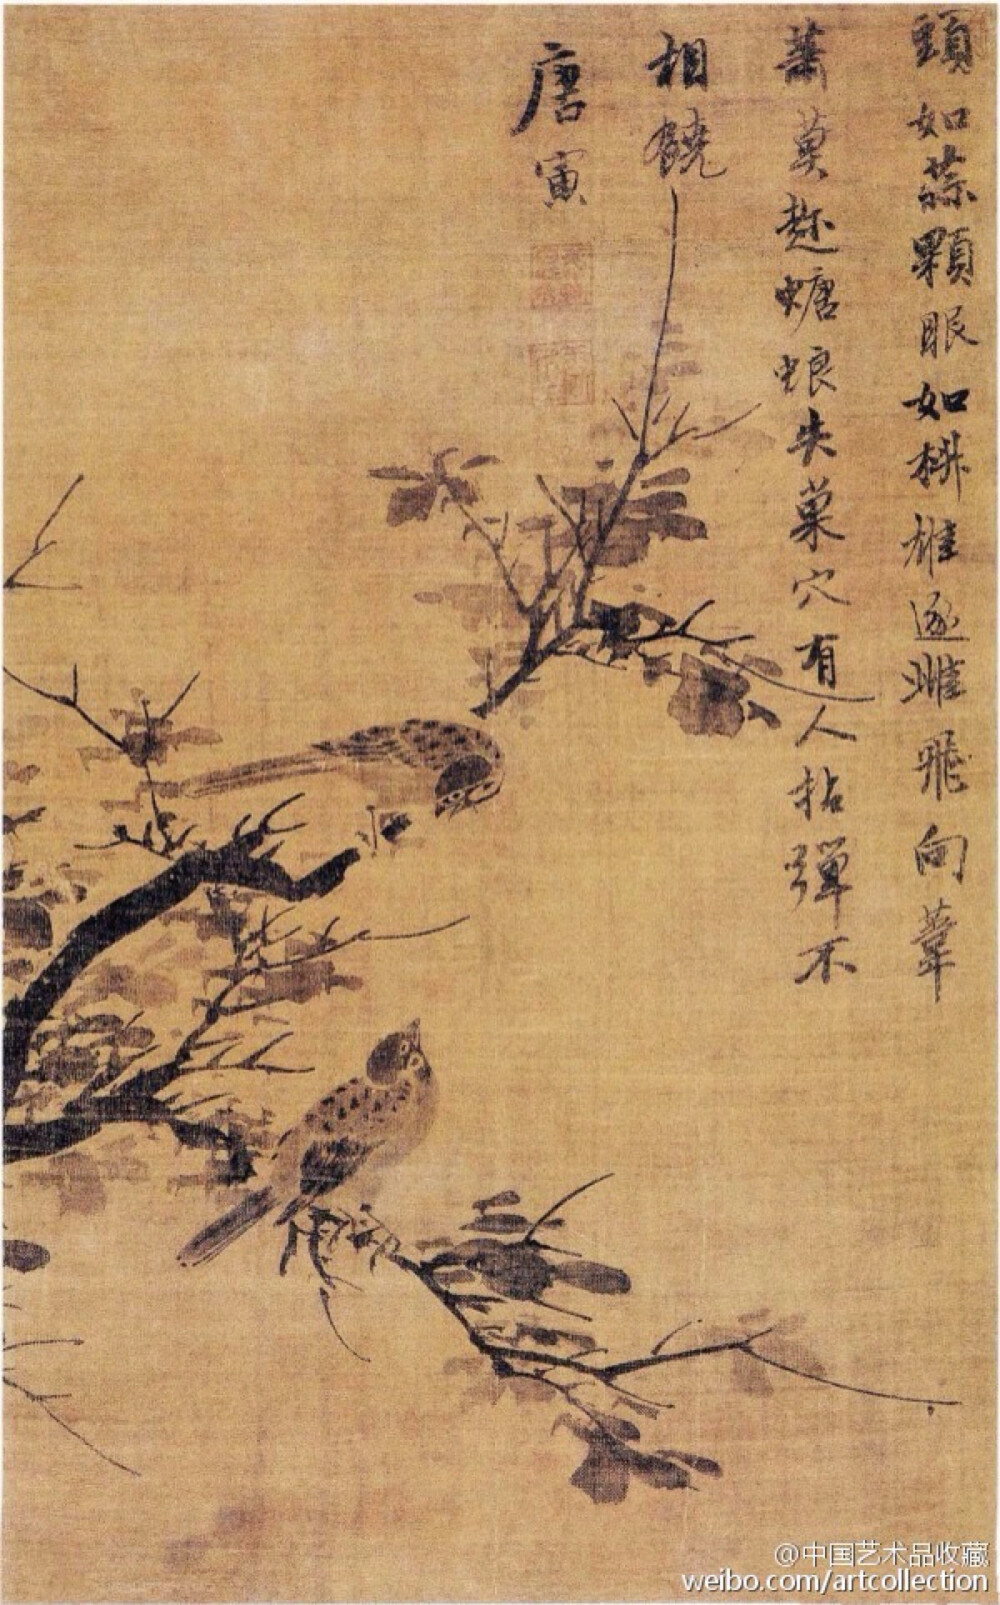 頭如蒜顆眼如椒雄逐雌飛向葦
蕭莫趁螗蜋失巢穴有人拈彈不
相饒
唐寅
@中国艺术品收藏
weibo.com/artcollection